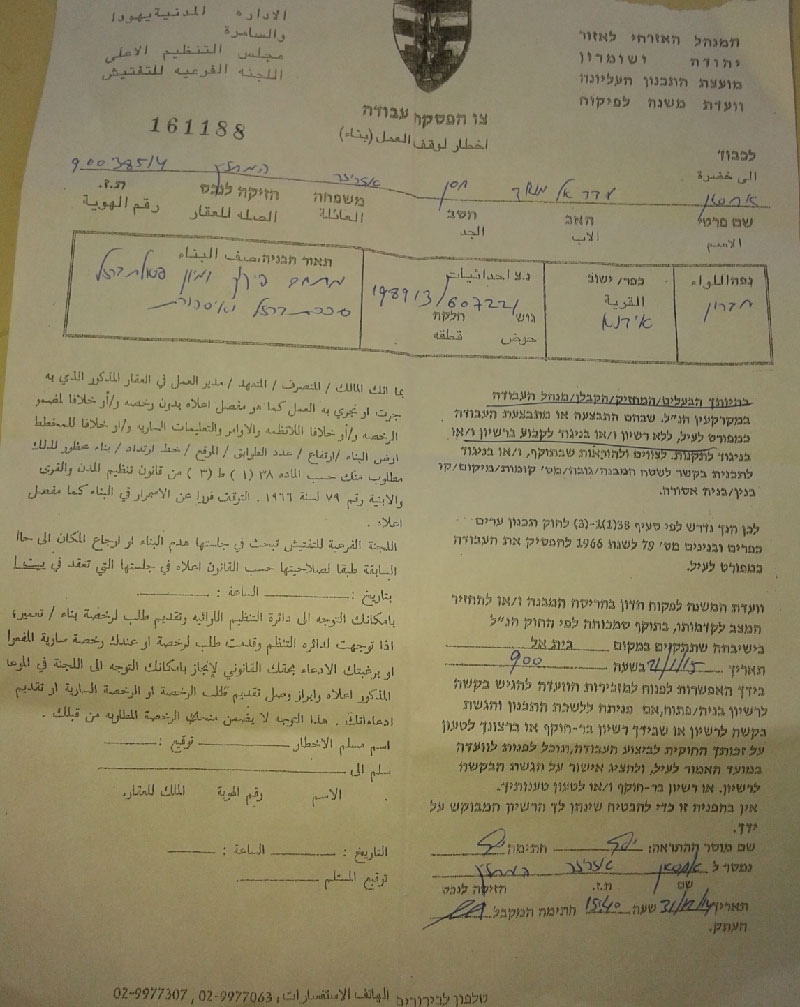 המנהל האזרחי לאזור
יהודה ושומרון
מועצת התכנון העליונה
וועדת משנה לפיקוח
الاداره المدنية يهودا
والسامرة
مجلس التنظيم الاعلى
اللجنه الفرعيه للتفتيش
צו הפסקת עבודה
اخطار لوقف العمل (بناء)
161188
לכבוד
الى حضرة
900385/4
שם פרטי האב הסב משפחה הזיקה לנכס ת.ז.
الاسم الاب الجد العائلة الصله للعقار رقم الهوية
נפה/اللواء
חברון
כפר/ישוב
القرية
אידנא
נ.צ احداثيات
198913/607221
גוש חלקה
حوض قطعه
תאור הבניה/وصف البناء
בהיותך הבעלים/המחזיק/הקבלן/מנהל העבודה
במקרקעין הנ"ל. שבהם התבצעה או מתבצעת העבודה
כמפורט לעיל, ללא רשיון ו/או בניגוד לקבוע ברשיון ו/או
בניגוד לתקנות, לצווים ולהוראות שבתוקף, ו/או בניגוד
לתכנית בקשר לשטח המבנה/גובה/מס' קומות/מיקום/קו
בנין/בניה אסורה.
לכן הנך נדרש לפי סעיף 38(1)-(3) לחוק תכנון ערים
כפרים ובנינים מס' 79 לשנת 1966 להפסיק את העבודה
כמפורט לעיל.
וועדת המשנה לפקוח תדון בהריסת המבנה ו/או להחזיר
המצב לקדמותו, בתוקף סמכותה לפי החוק הנ"ל
בישיבתה שתתקיים במקום בית אל
תאריך 21/1/15 בשעה 900
בידך האפשרות לפנות למזכירות הוועדה להגיש בקשה
לרשיון בניה/פתוח, אם פנית ללשכת התכנון והגשת
בקשה לרשיון או שבידך רשיון בר-תוקף או ברצונך לטעון
על זכותך החוקית לביצוע העבודה, תוכל לפנות לוועדה
במועד האמור לעיל, ולהציג אישור על הגשת הבקשה
לרשיון. או רשיון בר-תוקף ו/או לטעון טענותיך.
אין בהפניה זו כדי להבטיח שינתן לך הרשיון המבוקש על
ידך.
שם מוסר ההתראה: חתימה
נמסר ל
שם ת.ז. הזיקה לנכס
תאריך 31/12/14 שעה 15:40 חתימה המקבל
העתק.
بما انك المالك / المتصرف / المتعهد / مدير العمل في العقار المذكور الذي به
جرت او تجري به العمل كما هو مفصل اعلاه بدون رخصه و/أو خلافا لمضمون
الرخصه و/أو خلافا للانظمه والاوامر والتعليمات الساريه و/او خلافا للمخطط
ارض البناء /ارتفاع / عدد الطوابق / الموقع / خط ارتداد / بناء محظور لذلك
مطلوب منك حسب الماده ٣٨ (١) ط (٣) من قانون تنظيم المدن والقرى
والابنية رقم ٧٩ لسنة ١٩٦٦ . التوقف فورا عن الاستمرار في البناء كما مفصل
اعلاه .
اللجنه الفرعيه للتفتيش تبحث في جلستها هدم البناء او ارجاع المكان الى حالته
السابقة طبقا لصلاحيتها حسب القانون اعلاه في جلستها التي تعقد في
بتاريخ: الساعة :
بامكانك التوجه الى دائرة التنظيم اللوائيه وتقديم طلب لرخصة بناء / تعمير،
اذا توجهت لدائره التنظم وقدمت طلب لرخصة او عندك رخصة سارية المفعول
او برغبتك الادعاء بحقك القانوني لإنجاز بامكانك التوجه الى اللجنة في الموعد
المذكور اعلاه وابراز وصل تقديم طلب الرخصة او الرخصة السارية او تقديم
ادعاءاتك . هذا التوجه لا يضمن منحك الرخصة المطلوبه من قبلك .
اسم مسلم الاخطار توقيع :
سلم الى
الاسم رقم الهوية المالك للعقار.
التاريخ : الساعة :
توقيع المستلم
טלפון לבירורים الهاتف الاستفسارات: 02-9977063 , 02-9977307